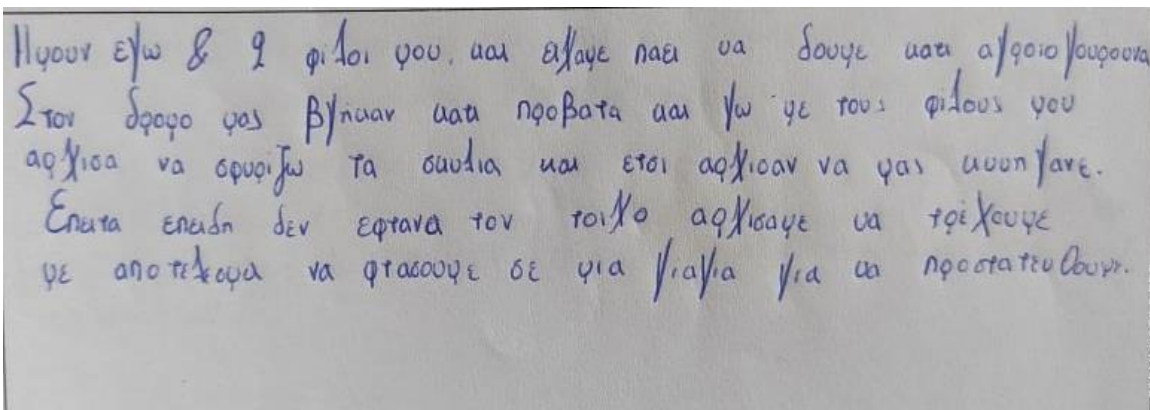 Ημουν εγω & 2 φιλοι μου. και ειχαμε παει να δουμε κατι αγριογουρουνα
Στον δρομο μας βγηκαν κατι προβατα και γω με τους φιλους μου
αρχισα να σφυριζω τα σκυλια και ετσι αρχισαν να μας κυνηγανε.
Επειτα επειδη δεν εφτανα τον τοιχο αρχισαμε να τρεχουμε
με αποτελεσμα να φτασουμε σε μια γιαγια για να προστατευθουμε.